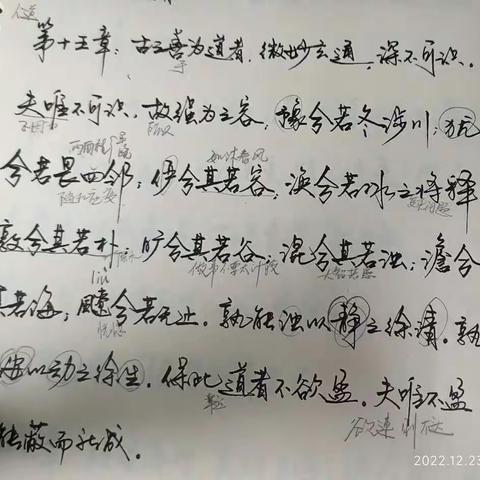 第十五章：古之善为道者，微妙玄通，深不可识。
夫唯不可识，故强为之容；豫兮若冬涉川；犹
兮若畏四邻；俨兮其若容；涣兮若冰之将释
敦兮其若朴；旷兮其若谷；混兮其若浊；澹兮
其若海；飂兮若无止。孰能浊以静之徐清。孰
以动之徐生。保此道者不欲盈。夫唯不盈
能蔽而新成。
如沐春风
做事不要太计较
大智若愚
2022.12.23